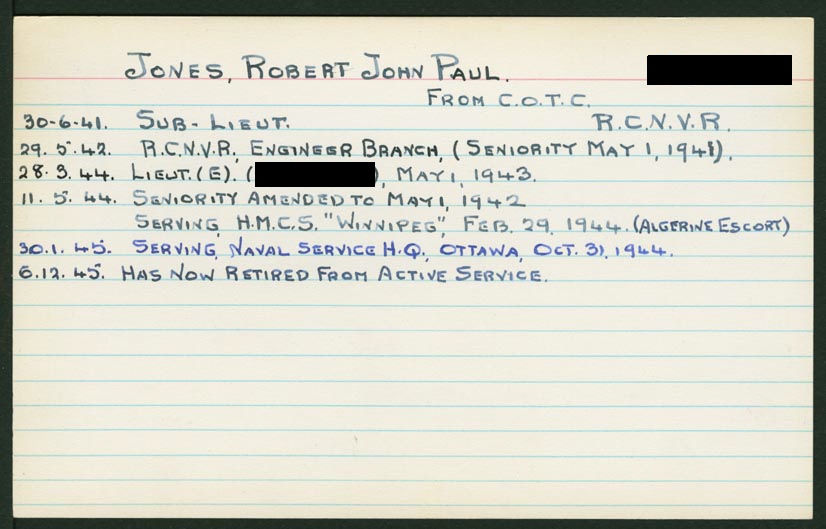 JONES, ROBERT JOHN PAUL.
FROM C.O.T.C.
30-6-41. SUB-LIEUT. R.C.N.V.R.
29.5.42. R.C.N.V.R. ENGINEER BRANCH, (SENIORITY MAY 1, 1941).
28.3.44. LIEUT.(E). ( ), MAY 1, 1943.
11.5.44. SENIORITY AMENDED TO MAY 1, 1942
SERVING H.M.C.S. "WINNIPEG", FEB. 29, 1944. (ALGERINE ESCORT)
30.1.45. SERVING NAVAL SERVICE H.Q., OTTAWA, OCT. 31, 1944.
6.12.45. HAS NOW RETIRED FROM ACTIVE SERVICE.